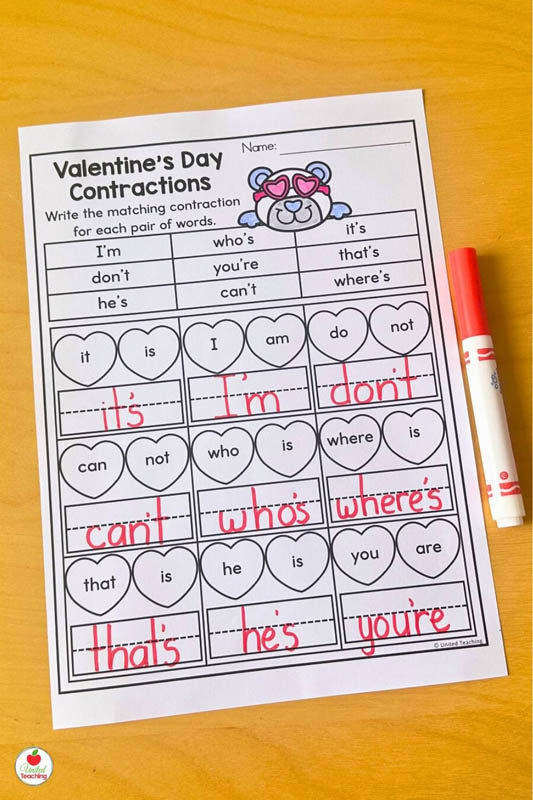 Name:
Valentine's Day
Contractions
Write the matching contraction
for each pair of words.
I'm who's it's
don't you're that's
he's can't where's
it is I am do not
it's I'm don't
can not who is where is
can't who's where's
that is he is you are
that's he's you're
© United Teaching
United
Teaching